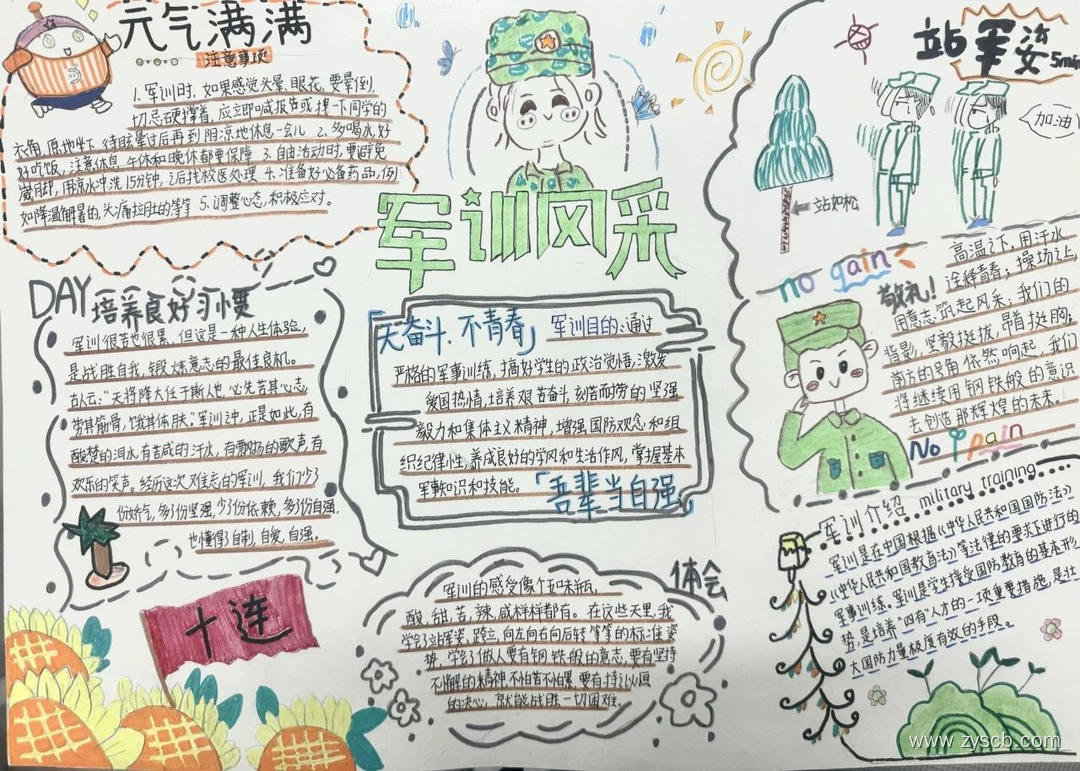 元气满满
注意事项
1. 军训时,如果感觉头晕,眼花,要晕倒,
切忌硬撑着,应立即喊报告或撞一下同学的
六角,原地坐下,待眩晕过后再到阴凉地休息一会儿 2. 多喝水,好
好吃饭,注意休息,午休和晚休都要保障 3. 自由活动时,要避免
崴脚,用凉水冲洗15分钟,之后找校医处理 4. 准备好必备药品,例
如降温解暑的,头痛拉肚的等等 5. 调整心态,积极应对。
军训风采
站军姿
5min
加油
站如松
no gain
敬礼!
高温之下,用汗水
诠释青春;操场之上,
用意志,筑起风采;我们的
背影,坚毅挺拔,昂首挺胸;
南方的号角依然响起,我们
将继续用钢铁般的意识
去创造那辉煌的未来.
No pain
DAY 培养良好习惯
军训很苦也很累,但这是一种人生体验,
是战胜自我,锻炼意志的最佳良机。
古人云:“天将降大任于斯人也,必先苦其心志,
劳其筋骨,饿其体肤。”军训之中,正是如此,有
酸楚的泪水,有苦咸的汗水,有飘扬的歌声,有
欢乐的笑声。经历这次难忘的军训,我们少了
份娇气,多了份坚强,少了份依赖,多了份自强,
也懂得了自制,自爱,自强。
「无奋斗、不青春」
军训目的:通过
严格的军事训练,提高好学生的政治觉悟,激发
爱国热情,培养艰苦奋斗,刻苦耐劳的坚强
毅力和集体主义精神,增强国防观念和组
织纪律性,养成良好的学风和生活作风,掌握基本
军事知识和技能。
「吾辈当自强」
十连
体会
军训的感受像个五味瓶,
酸、甜、苦、辣、咸样样都有。在这些天里,我
学会了站军姿,跨立,向左向右向后转等等的标准姿
势,学会了做人要有钢铁般的意志,要有坚持
不懈的精神,不怕苦不怕累,要有持之以恒
的决心,就能战胜一切困难.
军训介绍 military training
军训是在中国根据《中华人民共和国国防法》
《中华人民共和国教育法》等法律的要求下进行的
军事训练。军训是学生接受国防教育的基本形
势,是培养“四有”人才的一项重要措施,是壮
大国防力量极度有效的手段。
www.zyscb.com